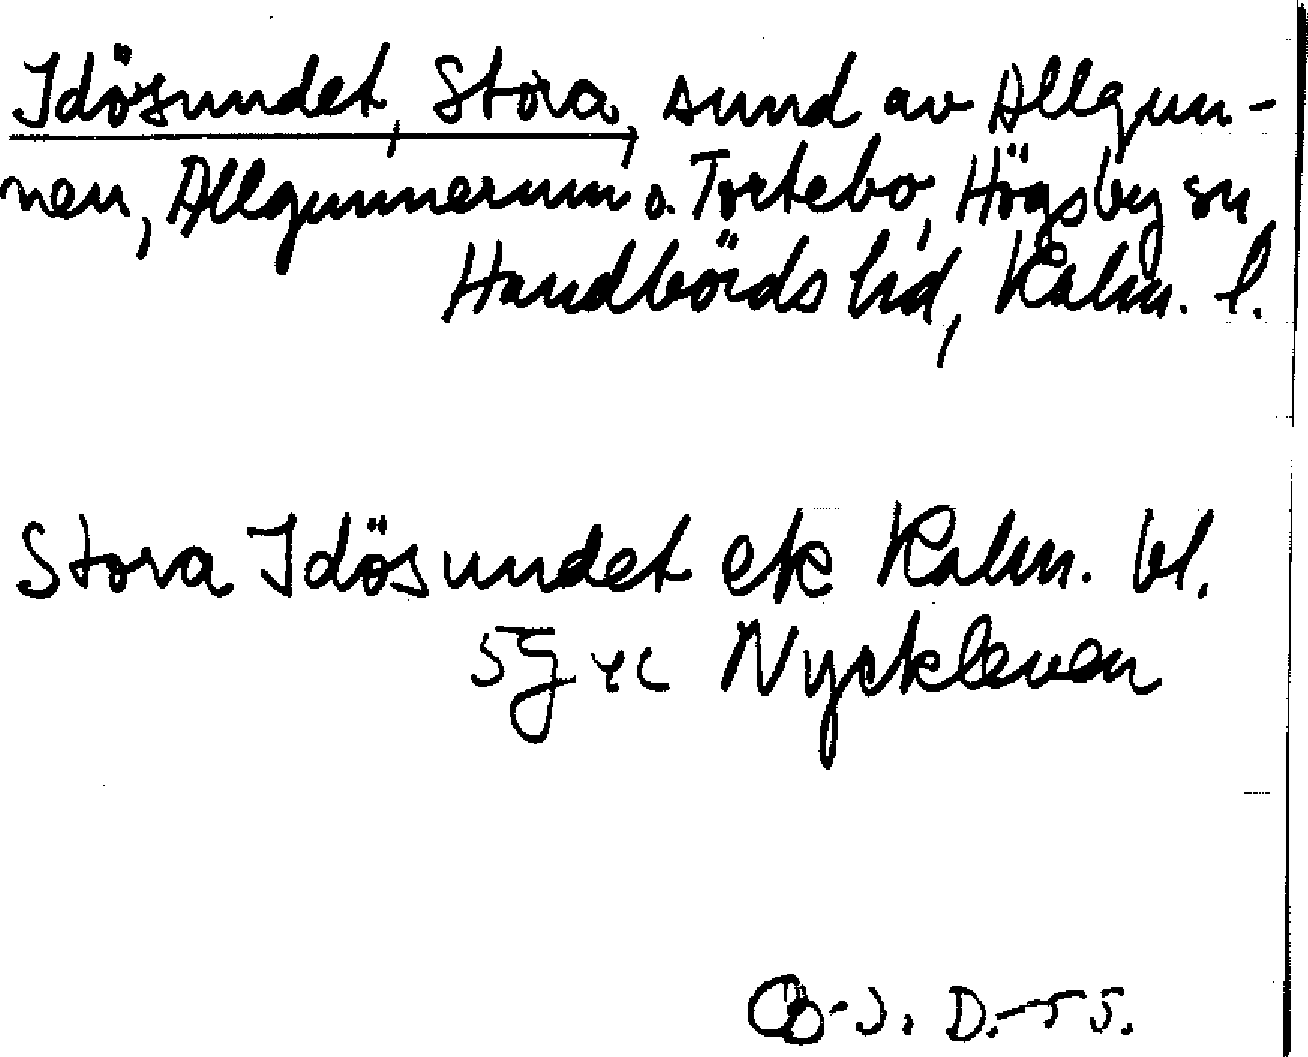 Idösundet, Stora, sund av Allgun-
nen, Allgunnerum o. Tortebo, Högsby sn
Handbörds hd, Kalm. l.
Stora Idösundet ek Kalm. bl.
5g yc Nyckleven
B-J. D. -55.